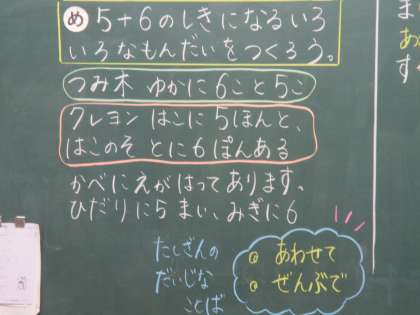 め 5+6のしきになるいろ
いろなもんだいをつくろう。
つみ木 ゆかに6こと5こ
クレヨン はこに5ほんと、
はこのそとに6ぽんある
かべにえがはってあります。
ひだりに5まい、みぎに6
たしざんの
だいじな
ことば
あわせて
ぜんぶで
ま
あ
す